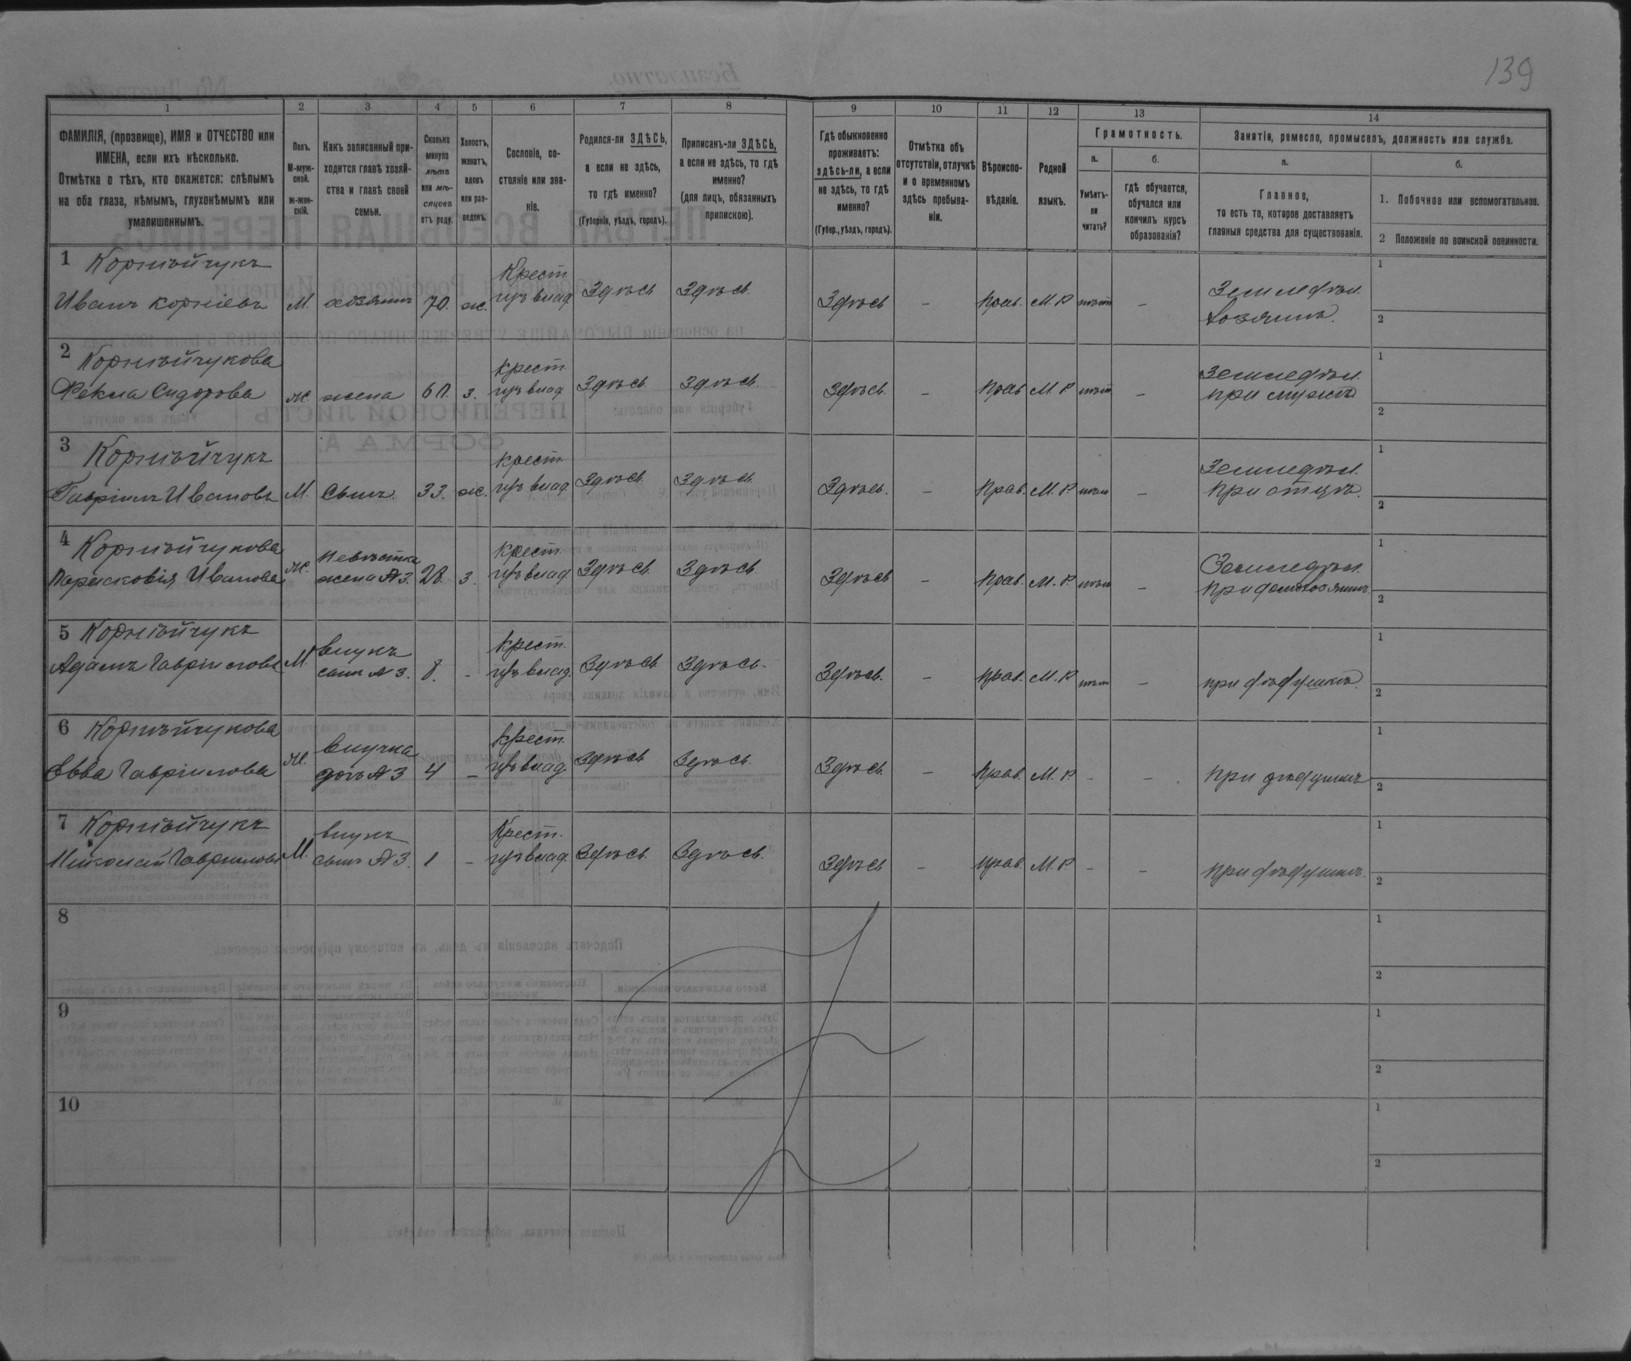 139
1 2 3 4 5 6 7 8 9 10 11 12 13 14
ФАМИЛІЯ, (прозвище), ИМЯ и ОТЧЕСТВО или
ИМЕНА, если ихъ нѣсколько.
Отмѣтка о тѣхъ, кто окажется: слѣпымъ
на оба глаза, нѣмымъ, глухонѣмымъ или
умалишеннымъ.
Полъ.
М-муж-
ской.
ж-жен-
скій.
Какъ записанный при-
ходится главѣ хозяй-
ства и главѣ своей
семьи.
Сколько
минуло
лѣтъ
или мѣ-
сяцевъ
отъ роду.
Холостъ,
женатъ,
вдовъ
или раз-
веденъ.
Сословіе, со-
стояніе или зва-
ніе.
Родился-ли ЗДѢСЬ,
а если не здѣсь,
то гдѣ именно?
(Губернія, уѣздъ, городъ).
Приписанъ-ли ЗДѢСЬ,
а если не здѣсь, то гдѣ
именно?
(для лицъ, обязанныхъ
припискою).
Гдѣ обыкновенно
проживаетъ:
здѣсь-ли, а если
не здѣсь, то гдѣ
именно?
(Губер., уѣздъ, городъ).
Отмѣтка объ
отсутствіи, отлучкѣ
и о временномъ
здѣсь пребыва-
ніи.
Вѣроиспо-
вѣданіе.
Родной
языкъ.
Грамотность.
а.
Умѣетъ-
ли
читать?
б.
гдѣ обучается,
обучался или
кончилъ курсъ
образованія?
Занятіе, ремесло, промыселъ, должность или служба.
а.
Главное,
то есть то, которое доставляетъ
главныя средства для существованія.
б.
1. Побочное или вспомогательное.
2 Положеніе по воинской повинности.
1 Корнѣйчукъ
Иванъ Корніевъ М. хозяинъ 70. ж. Крест. Здѣсь Здѣсь. Здѣсь – Прав. М. Р нѣтъ – Земледѣл.
Хозяинъ.
1
2
2 Корнѣйчукова
Ѳекла Сидорова ж жена 60. з. крест Здѣсь. Здѣсь. Здѣсь. – Прав М Р нѣтъ – Земледѣл.
при мужѣ
1
2
3 Корнѣйчукъ
Гавріилъ Ивановъ М. Сынъ. 33. ж. крест Здѣсь. Здѣсь Здѣсь. – Прав. М. Р. нѣтъ – Земледѣл.
При отцѣ.
1
2
4 Корнѣйчукова
Парасковія Иванова Ж. невѣстка
жена №3. 28. з. крест. Здѣсь Здѣсь Здѣсь – Прав. М. Р. нѣтъ – Земледѣл.
При домохозяинѣ
1
2
5 Корнѣйчукъ
Адамъ Гавріиловъ М внукъ
сынъ №3. 8. – Крест. Здѣсь Здѣсь. Здѣсь. – Прав. М. Р. нѣтъ – при дѣдушкѣ.
1
2
6 Корнѣйчукова
Евва Гавріилова Ж. Внучка
дочь №3 4 – Крест. Здѣсь Здѣсь. Здѣсь. – Прав. М. Р – – При дѣдушкѣ
1
2
7 Корнѣйчукъ
Николай Гавріиловъ М. внукъ
сынъ №3. 1 – Крест. Здѣсь. Здѣсь. Здѣсь – Прав М. Р – – При дѣдушкѣ.
1
2
8
1
2
9
1
2
10
1
2